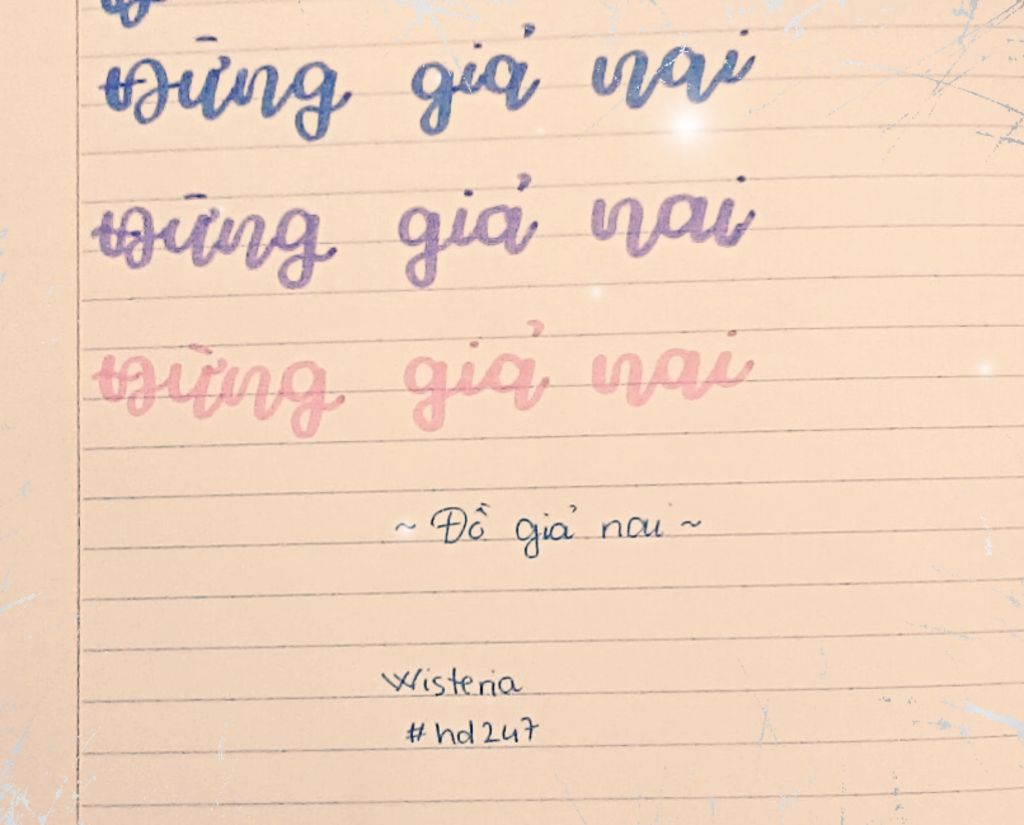 Đừng giả nai
Đừng giả nai
Đừng giả nai
~ Đồ giả nai ~
Wisteria
#hd247